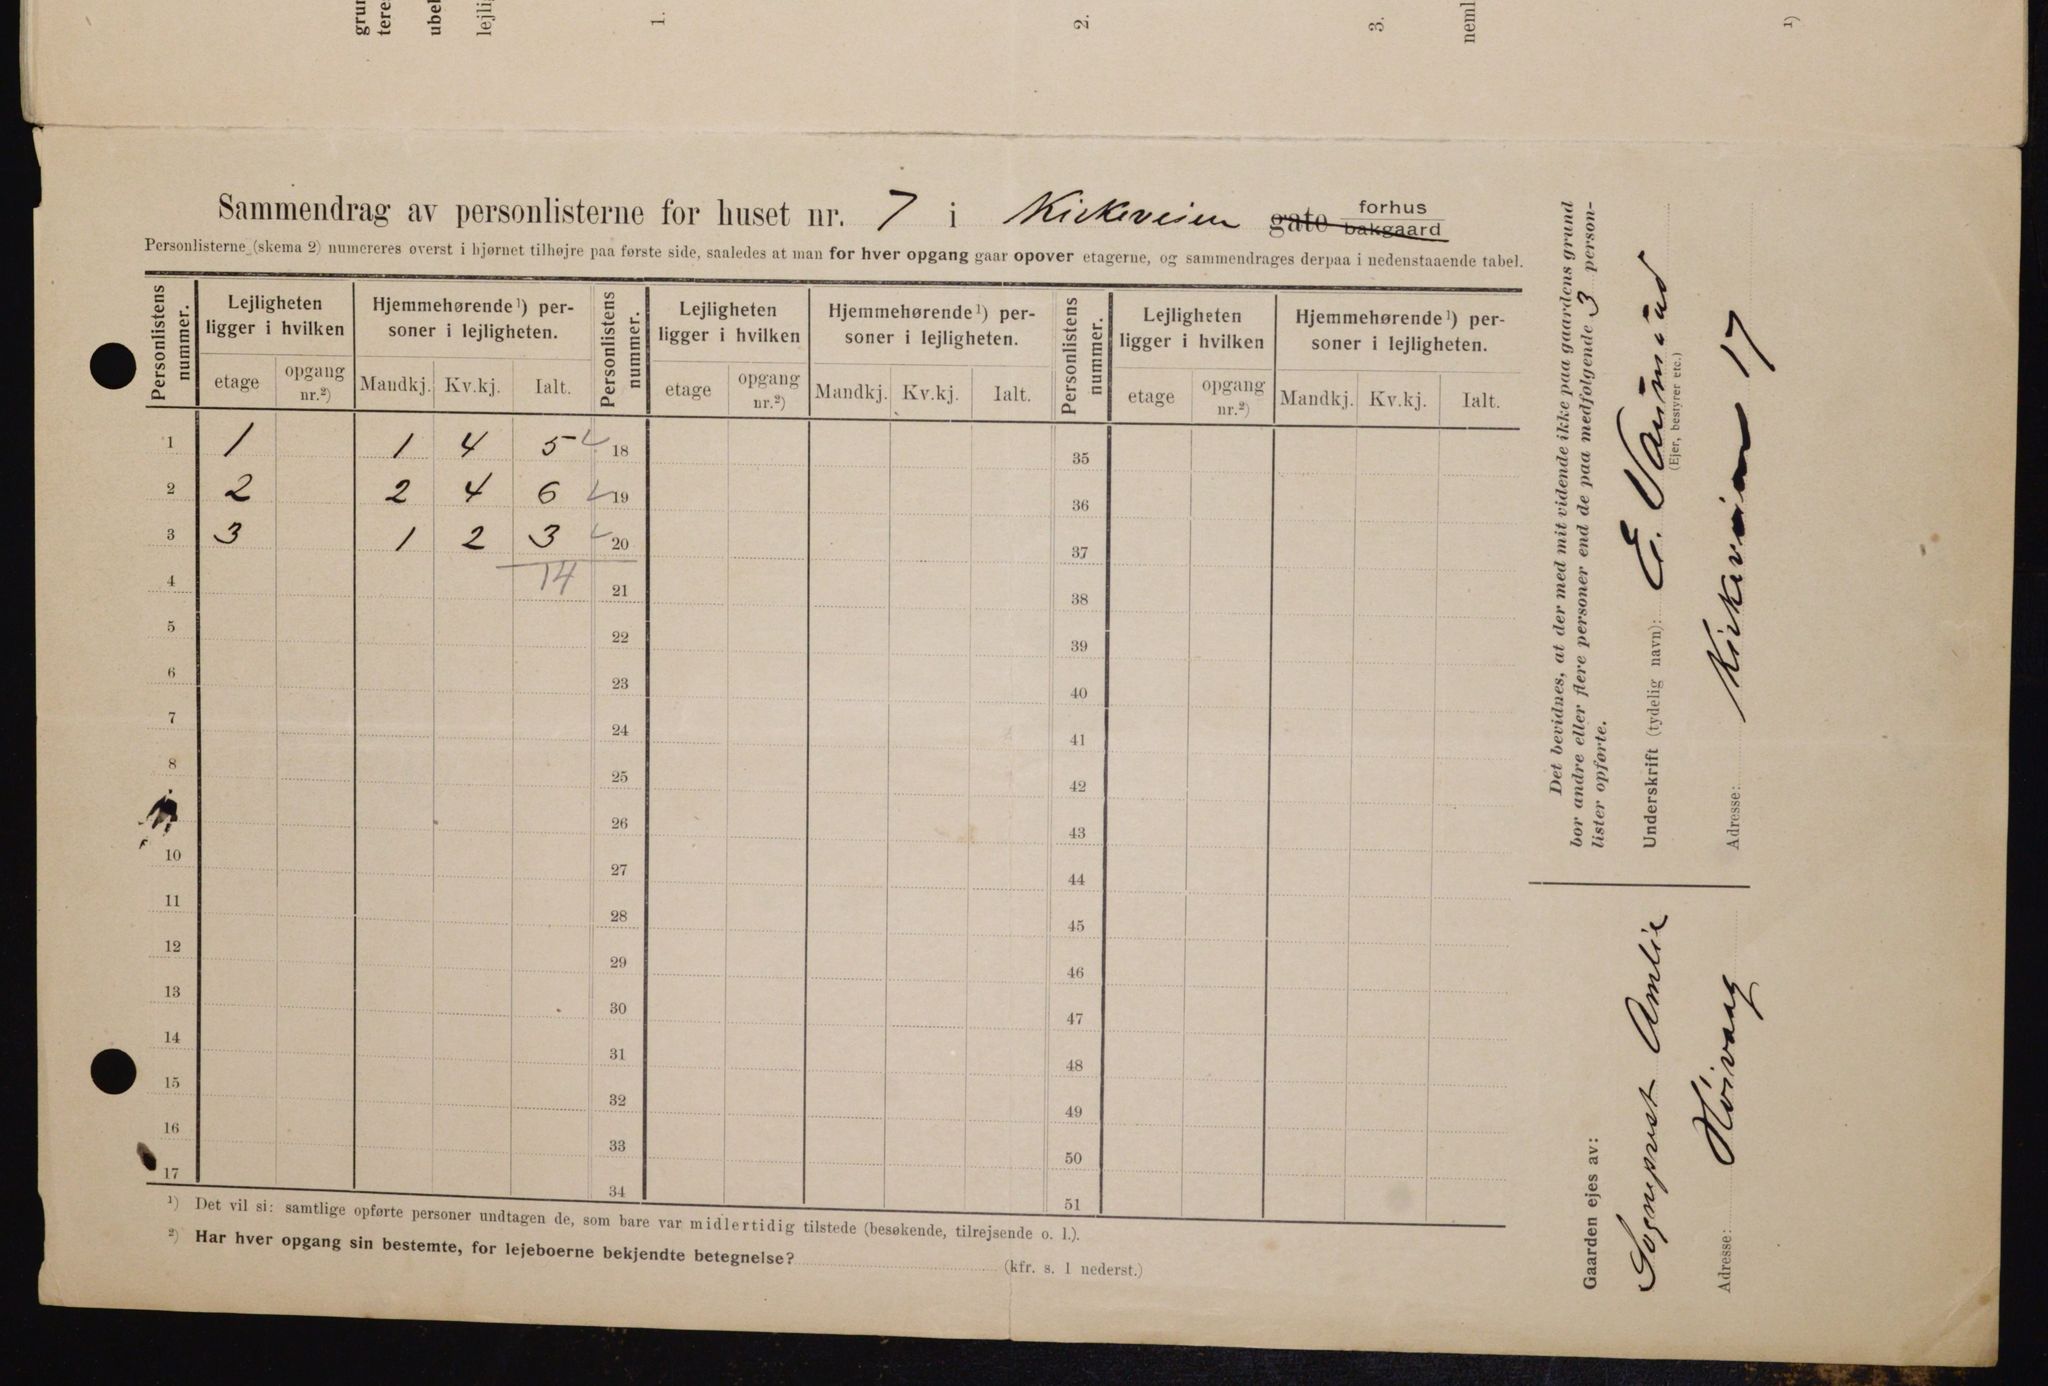 grun
tere
ubel
lejli
1.
2.
3.
neml
¹)
Sammendrag av personlisterne for huset nr. 7 i Kirkeveien gate forhus bakgaard
Personlisterne (skema 2) numereres øverst i hjørnet tilhøjre paa første side, saaledes at man for hver opgang gaar opover etagerne, og sammendrages derpaa i nedenstaaende tabel.
Personlistens nummer. Lejligheten ligger i hvilken Hjemmehørende¹) personer i lejligheten. Personlistens nummer. Lejligheten ligger i hvilken Hjemmehørende¹) personer i lejligheten. Personlistens nummer. Lejligheten ligger i hvilken Hjemmehørende¹) personer i lejligheten.
etage opgang nr.²) Mandkj. Kv.kj. Ialt. etage opgang nr.²) Mandkj. Kv.kj. Ialt. etage opgang nr.²) Mandkj. Kv.kj. Ialt.
1 1 1 4 5 18 35
2 2 2 4 6 19 36
3 3 1 2 3 20 37
4 14 21 38
5 22 39
6 23 40
7 24 41
8 25 42
26 43
10 27 44
11 28 45
12 29 46
13 30 47
14 31 48
15 32 49
16 33 50
17 34 51
¹) Det vil si: samtlige opførte personer undtagen de, som bare var midlertidig tilstede (besøkende, tilrejsende o. l.).
²) Har hver opgang sin bestemte, for lejeboerne bekjendte betegnelse? (kfr. s. 1 nederst.)
Det bevidnes, at der med mit vidende ikke paa gaardens grund
bor andre eller flere personer end de paa medfølgende 3 person-
lister opførte.
Underskrift (tydelig navn): E.
(Ejer, bestyrer etc.)
Adresse: Kirkeveien 17
Gaarden ejes av:
Sogneprest Amlie
Adresse: Høivaag